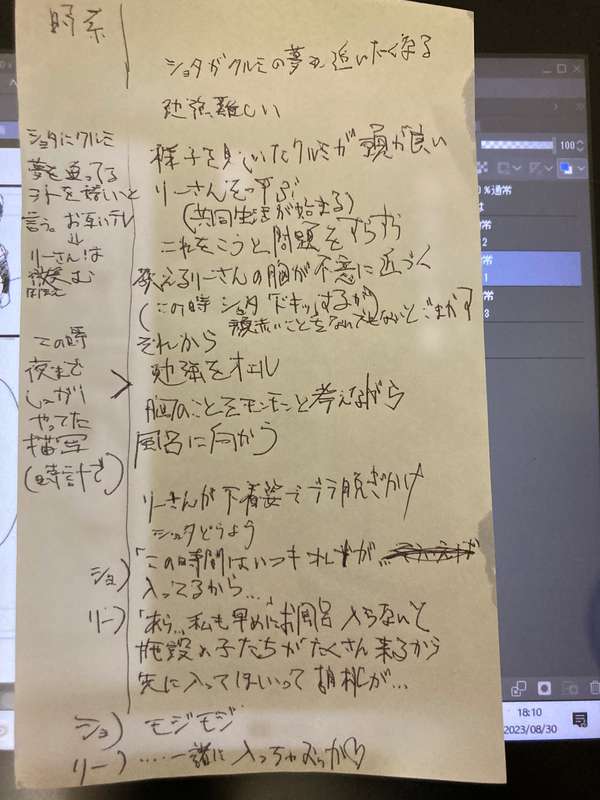 時系
ショタがクルミの夢を追いたくなる
勉強、難しい
様子を見ていたクルミが頭が良い
リーさんを呼ぶ
(共同生活が始まる)
これをこうと問題をすらすら
教えるリーさんの胸が不意に近づく
(この時ショタドキッとするが
顔赤いことをなんでもないとごまかす
それから
勉強をオエル
胸のことをモンモンと考えながら
風呂に向かう
ショタにクルミ
夢を追ってる
言う。お互いテレ
↓
リーさんは
微笑む
この時
夜まで
しっかり
やってた
描写
(時計で)
リーさんが下着姿でブラ脱ぎかけ
ショタどうよう
ショ)「この時間はいつも
入ってるから…」
リー)「あら…私も早めにお風呂入らないと
施設の子たちがたくさん来るから
先に入ってほしいって胡桃が…
ショ) モジモジ
リー) ‥‥一緒に入っちゃおっか♡
100
18:10
2023/08/30